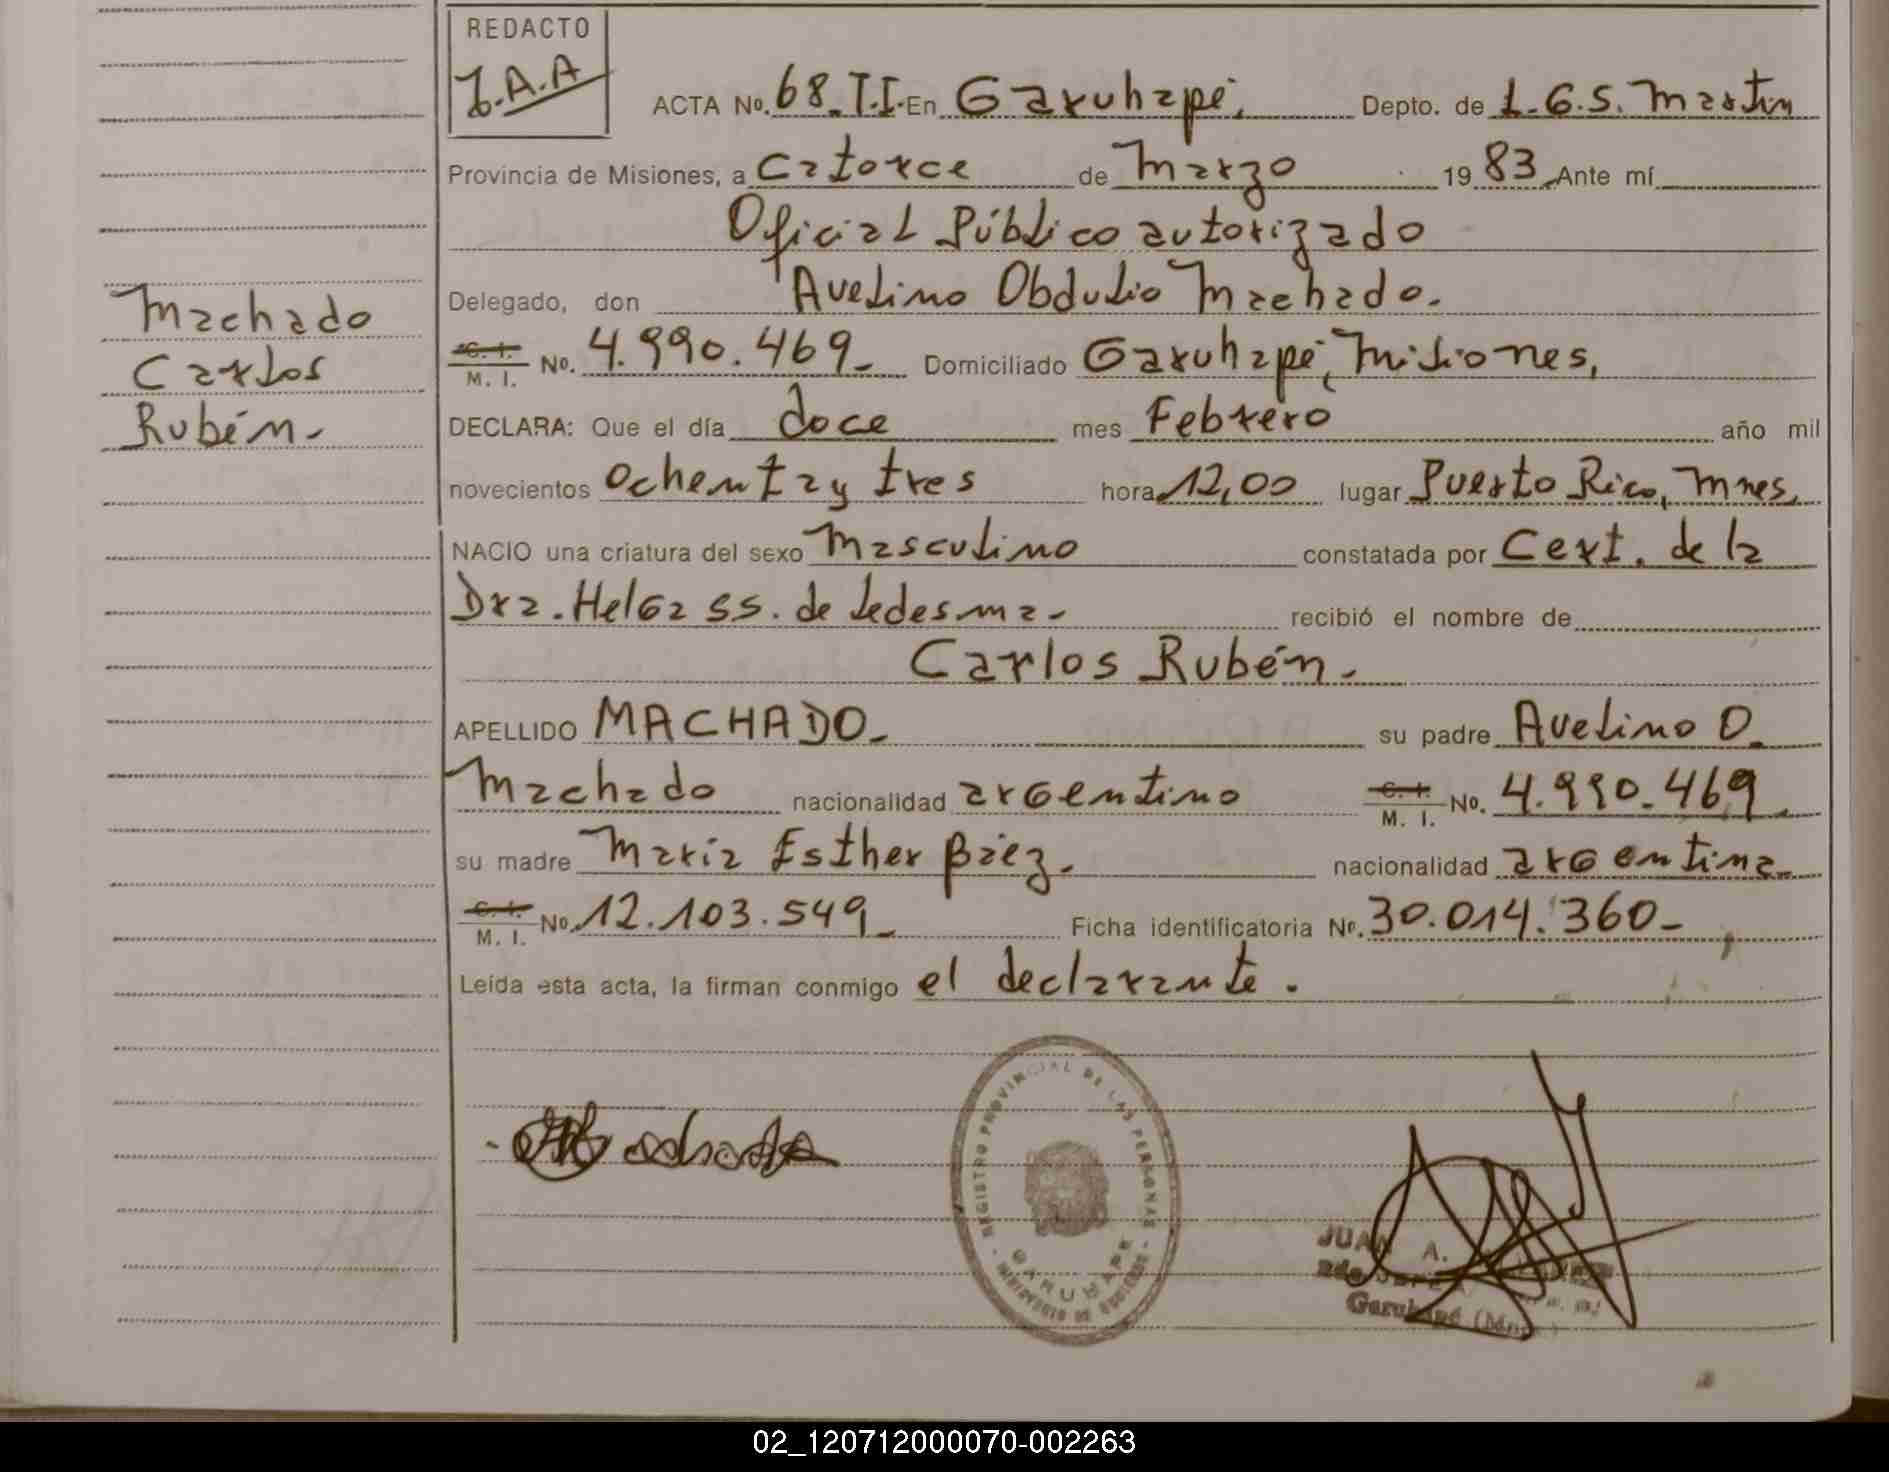 REDACTO
J.A.A
ACTA No. 68_T.I. En Garuhapé, Depto. de L.G.S. Martin
Provincia de Misiones, a Catorce de Marzo 1983 Ante mí
Oficial Público autorizado
Delegado, don Avelino Obdulio Machado.
C. I. M. I. No. 4.990.469_ Domiciliado Garuhapé, Misiones,
DECLARA: Que el día doce mes Febrero año mil
novecientos ochenta y tres hora 12,00 lugar Puerto Rico, Mnes,
NACIO una criatura del sexo Masculino constatada por Cert. de la
Dra. Helga SS. de Ledesma- recibió el nombre de
Carlos Rubén.-
APELLIDO MACHADO_ su padre Avelino O.
Machado nacionalidad argentino C. I. M. I. No. 4.990.469_
su madre María Esther Báez. nacionalidad argentina_
C. I. M. I. No. 12.103.549_ Ficha identificatoria No. 30.014.360-
Leída esta acta, la firman conmigo el declarante.
Machado
Carlos
Rubén-
REGISTRO PROVINCIAL DE LAS PERSONAS
GARUHAPE
MINISTERIO DE GOBIERNO
JUAN A.
Garuhapé (Mnes.)
02_120712000070-002263